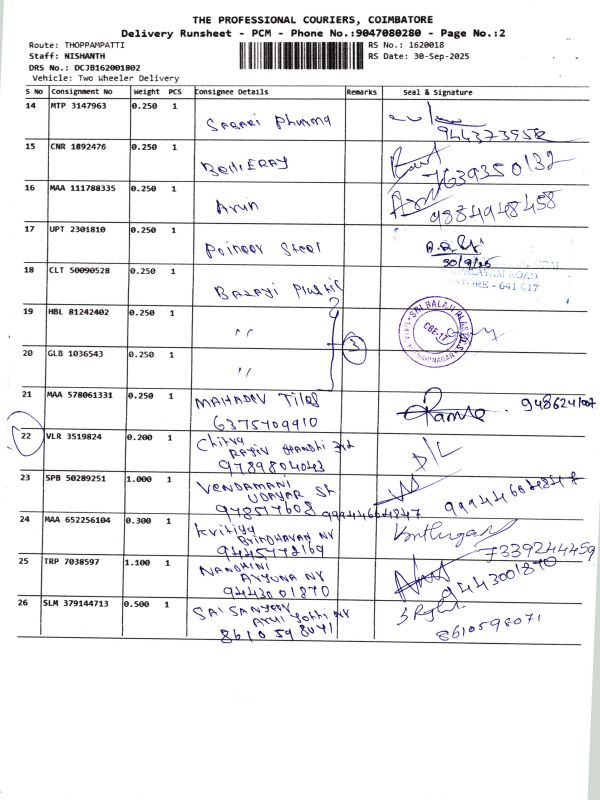 THE PROFESSIONAL COURIERS, COIMBATORE
Delivery Runsheet - PCM - Phone No.:9047080280 - Page No.:2
Route: THOPPAMPATTI RS No.: 1620018
Staff: NISHANTH RS Date: 30-Sep-2025
DRS No.: DCJB162001802
Vehicle: Two Wheeler Delivery
S No Consignment No Weight PCS Consignee Details Remarks Seal & Signature
14 MTP 3147963 0.250 1
SABARI Phurma
15 CNR 1892476 0.250 1
7639350132
16 MAA 111788335 0.250 1
Arun 9884948458
17 UPT 2301810 0.250 1
Poineer Steel
30/9/25
18 CLT 50090528 0.250 1
ROAD
641 017
BALAYI Plastic
19 HBL 81242402 0.250 1
〃
SRI BALAJI
CBE-17
20 GLB 1036543 0.250 1
〃 3
21 MAA 578061331 0.250 1
MAHADEV Tiles
6375709910
22 VLR 3519824 0.200 1
Chitra D/L
9789804043
23 SPB 50289251 1.000 1
VENDAMANI
UDAYAR St
24 MAA 652256104 0.300 1
Kritiya
BRINDHAVAN NY
9445772169 7339244459
25 TRP 7038597 1.100 1
NANDHINI
AYYUNA NY
9443001870 9443001870
26 SLM 379144713 0.500 1
8610598071 8610598071